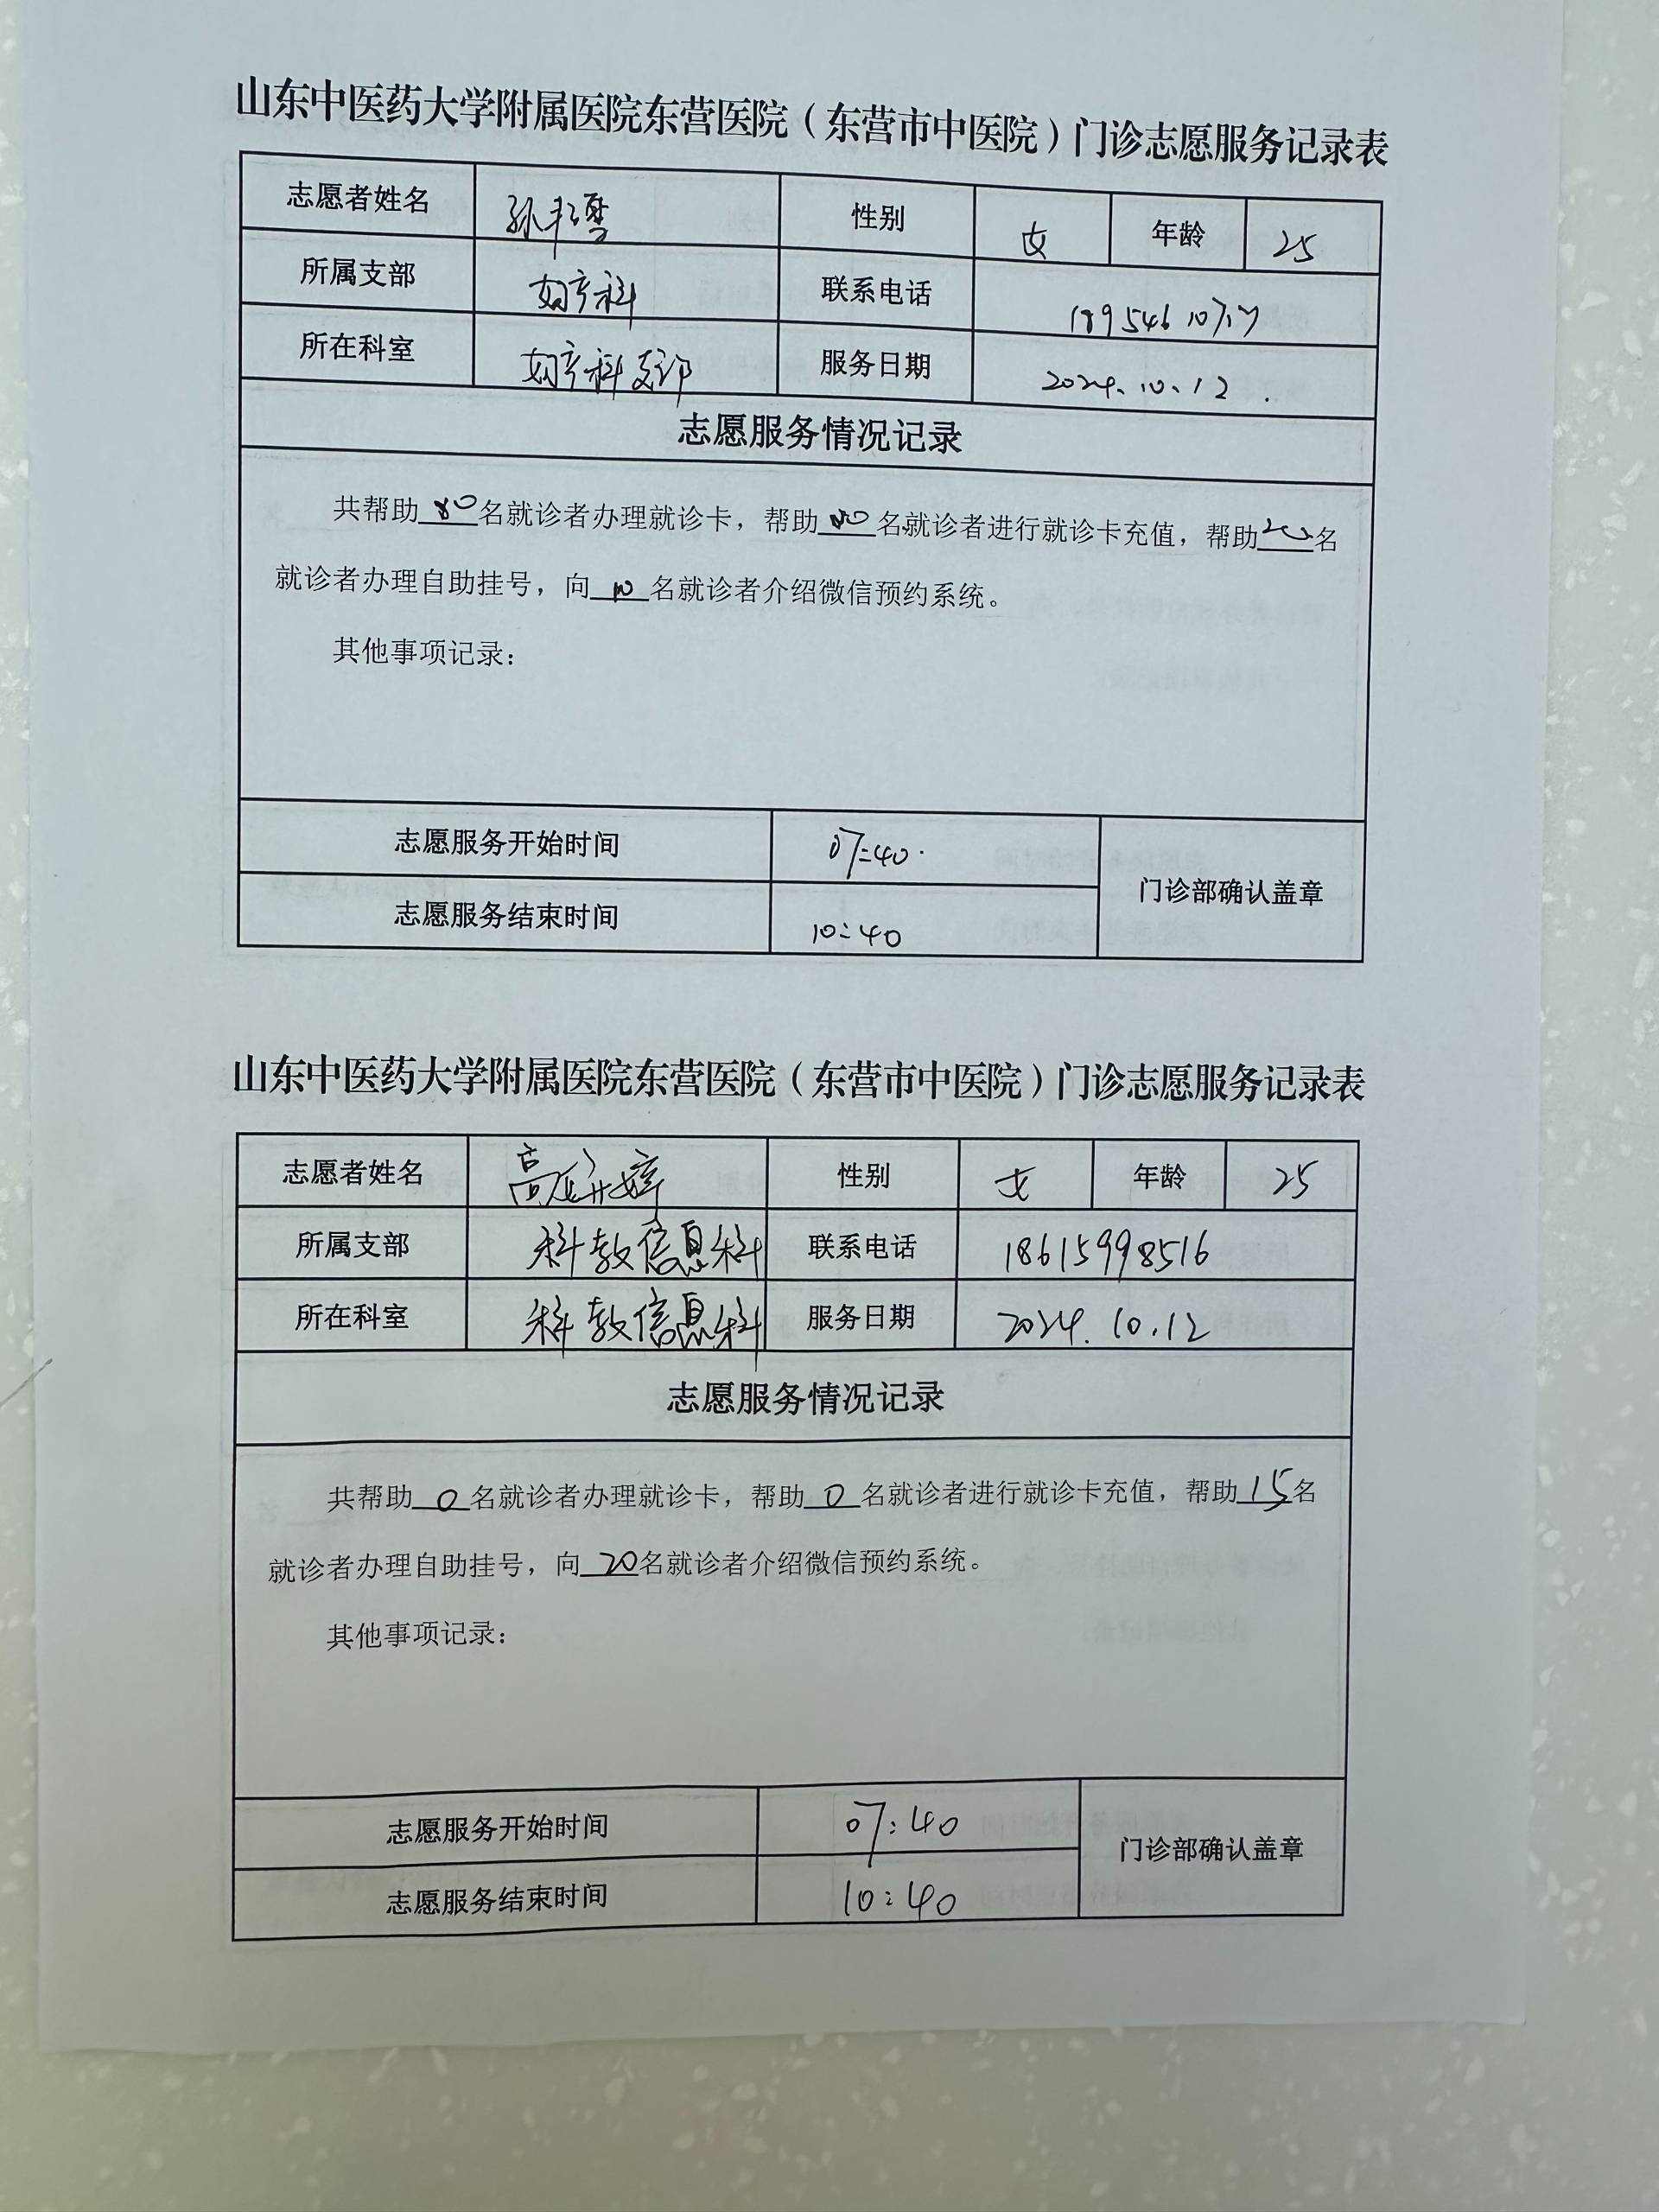 山东中医药大学附属医院东营医院（东营市中医院）门诊志愿服务记录表
志愿者姓名 孙 性别 女 年龄 25
所属支部 妇产科 联系电话
所在科室 妇产科支部 服务日期 2024.10.12.
志愿服务情况记录
共帮助80名就诊者办理就诊卡，帮助名就诊者进行就诊卡充值，帮助20名
就诊者办理自助挂号，向10名就诊者介绍微信预约系统。
其他事项记录：
志愿服务开始时间 07:40.
门诊部确认盖章
志愿服务结束时间 10:40
山东中医药大学附属医院东营医院（东营市中医院）门诊志愿服务记录表
志愿者姓名 高 婷 性别 女 年龄 25
所属支部 科教信息科 联系电话 18615998516
所在科室 科教信息科 服务日期 2024.10.12
志愿服务情况记录
共帮助0名就诊者办理就诊卡，帮助0名就诊者进行就诊卡充值，帮助15名
就诊者办理自助挂号，向20名就诊者介绍微信预约系统。
其他事项记录：
志愿服务开始时间 07:40
门诊部确认盖章
志愿服务结束时间 10:40